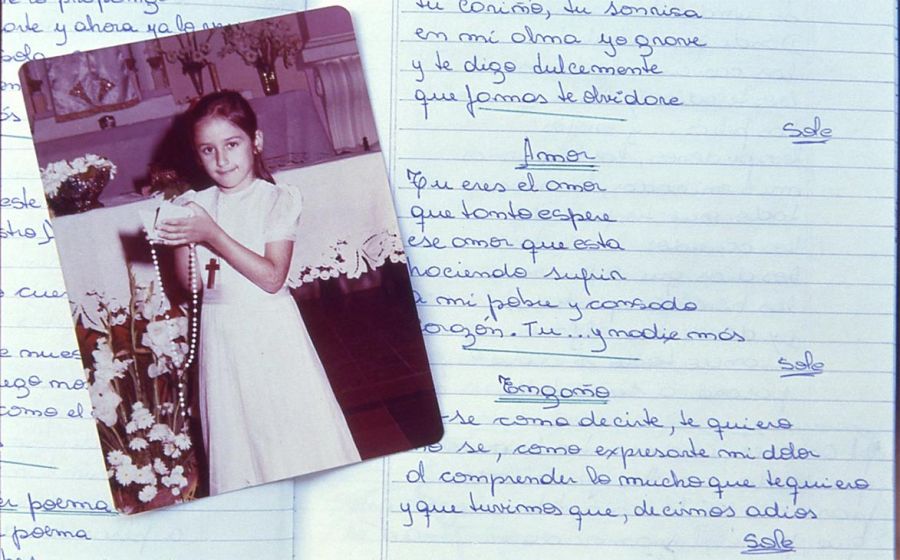 y ahora ya lo
sola
este
como el
poema
poema
tu cariño, tu sonrisa
en mi alma yo grave
y te digo dulcemente
que jamas te olvidare
Sole
Amor
Tu eres el amor
que tanto espere
ese amor que esta
haciendo sufrir
a mi pobre y cansado
orazón. Tu... y nadie más
sole
Engaño
se como decirte, te quiero
no se, como expresarte mi dolor
al comprender lo mucho que te quiero
y que tuvimos que, decirnos adios
Sole